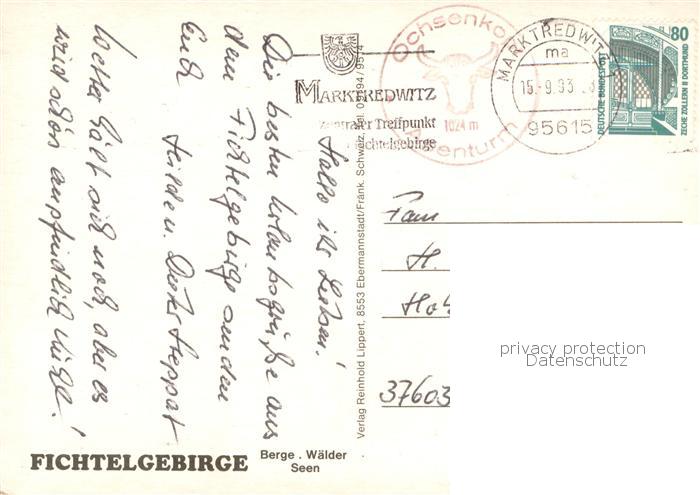 Hallo ihr Lieben!
Die besten Urlaubsgrüße aus
dem Fichtelgebirge senden
Euch Hilde u. Dieter
Wetter hält sich noch, aber es
wird schon empfindlich kühl!
MARKTREDWITZ
zentraler Treffpunkt
Fichtelgebirge
Ochsenkopf
1024 m
Asenturm
MARKTREDWITZ
ma
15.-9.93
95615
80
DEUTSCHE BUNDESPOST
ZECHE ZOLLERN II DORTMUND
Verlag Reinhold Lippert, 8553 Ebermannstadt/Fränk. Schweiz, Tel. 09194/9574
Fam
H.
37603
privacy protection
Datenschutz
FICHTELGEBIRGE
Berge . Wälder
Seen